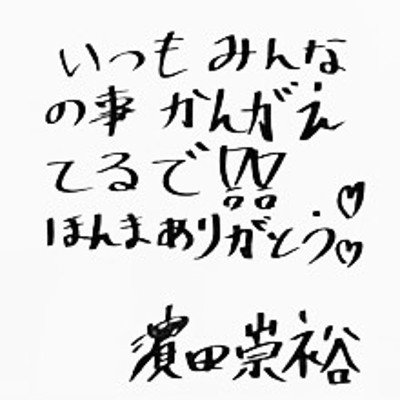 いつもみんな
の事 かんがえ
てるで!!!!
ほんまありがとう♡♡
濵田崇裕